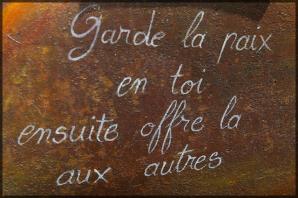 Garde la paix
en toi
ensuite offre la
aux autres